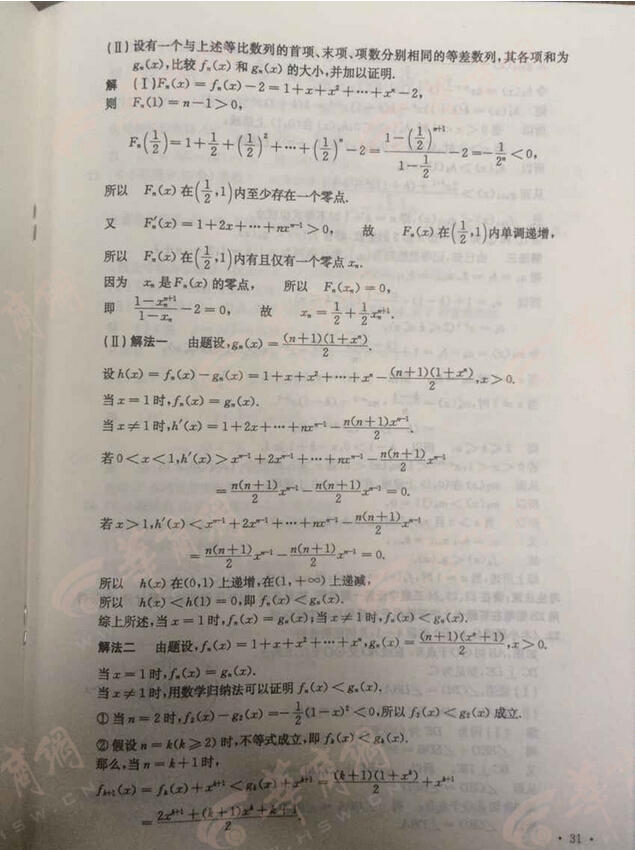 (Ⅱ)设有一个与上述等比数列的首项、末项、项数分别相同的等差数列,其各项和为
gₙ(x),比较 fₙ(x) 和 gₙ(x) 的大小,并加以证明.
解 (Ⅰ)Fₙ(x)=fₙ(x)-2=1+x+x²+⋯+xⁿ-2,
则 Fₙ(1)=n-1>0,
Fₙ(1/2)=1+1/2+(1/2)²+⋯+(1/2)ⁿ-2=(1-(1/2)ⁿ⁺¹)/(1-1/2)-2=-1/2ⁿ<0,
所以 Fₙ(x)在(1/2,1)内至少存在一个零点.
又 Fₙ′(x)=1+2x+⋯+nxⁿ⁻¹>0, 故 Fₙ(x)在(1/2,1)内单调递增,
所以 Fₙ(x)在(1/2,1)内有且仅有一个零点 xₙ.
因为 xₙ是Fₙ(x)的零点, 所以 Fₙ(xₙ)=0,
即 (1-xₙⁿ⁺¹)/(1-xₙ)-2=0, 故 xₙ=1/2+1/2xₙⁿ⁺¹.
(Ⅱ)解法一 由题设,gₙ(x)=(n+1)(1+xⁿ)/2.
设h(x)=fₙ(x)-gₙ(x)=1+x+x²+⋯+xⁿ-(n+1)(1+xⁿ)/2,x>0.
当x=1时,fₙ(x)=gₙ(x).
当x≠1时,h′(x)=1+2x+⋯+nxⁿ⁻¹-n(n+1)xⁿ⁻¹/2.
若0<x<1,h′(x)>xⁿ⁻¹+2xⁿ⁻¹+⋯+nxⁿ⁻¹-n(n+1)/2xⁿ⁻¹
=n(n+1)/2xⁿ⁻¹-n(n+1)/2xⁿ⁻¹=0.
若x>1,h′(x)<xⁿ⁻¹+2xⁿ⁻¹+⋯+nxⁿ⁻¹-n(n+1)/2xⁿ⁻¹
=n(n+1)/2xⁿ⁻¹-n(n+1)/2xⁿ⁻¹=0.
所以 h(x)在(0,1)上递增,在(1,+∞)上递减,
所以 h(x)<h(1)=0,即fₙ(x)<gₙ(x).
综上所述,当x=1时,fₙ(x)=gₙ(x);当x≠1时,fₙ(x)<gₙ(x).
解法二 由题设,fₙ(x)=1+x+x²+⋯+xⁿ,gₙ(x)=(n+1)(xⁿ+1)/2,x>0.
当x=1时,fₙ(x)=gₙ(x).
当x≠1时,用数学归纳法可以证明fₙ(x)<gₙ(x).
①当n=2时,f₂(x)-g₂(x)=-1/2(1-x)²<0,所以f₂(x)<g₂(x)成立.
②假设n=k(k≥2)时,不等式成立,即fₖ(x)<gₖ(x).
那么,当n=k+1时,
fₖ₊₁(x)=fₖ(x)+xᵏ⁺¹<gₖ(x)+xᵏ⁺¹=(k+1)(1+xᵏ)/2+xᵏ⁺¹
=(2xᵏ⁺¹+(k+1)xᵏ+k+1)/2.
· 31 ·